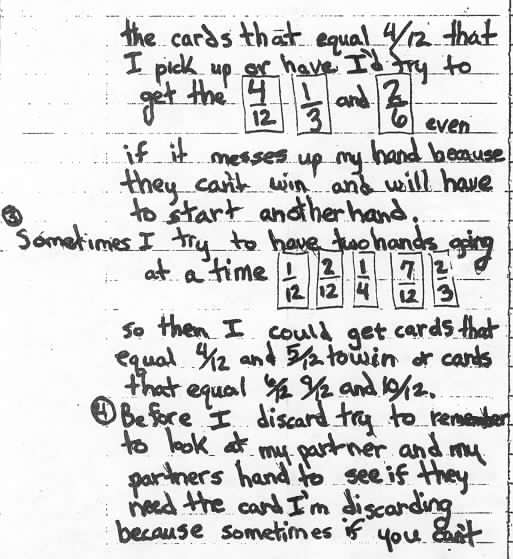 the cards that equal 4/12 that
I pick up or have I'd try to
get the 4/12 1/3 and 2/6 even
if it messes up my hand because
they can't win and will have
to start another hand.
③ Sometimes I try to have two hands going
at a time 1/12 2/12 1/4 7/12 2/3
so then I could get cards that
equal 4/12 and 5/12 to win or cards
that equal 6/12 9/12 and 10/12.
④ Before I discard try to remember
to look at my partner and my
partners hand to see if they
need the card I'm discarding
because sometimes if you can't